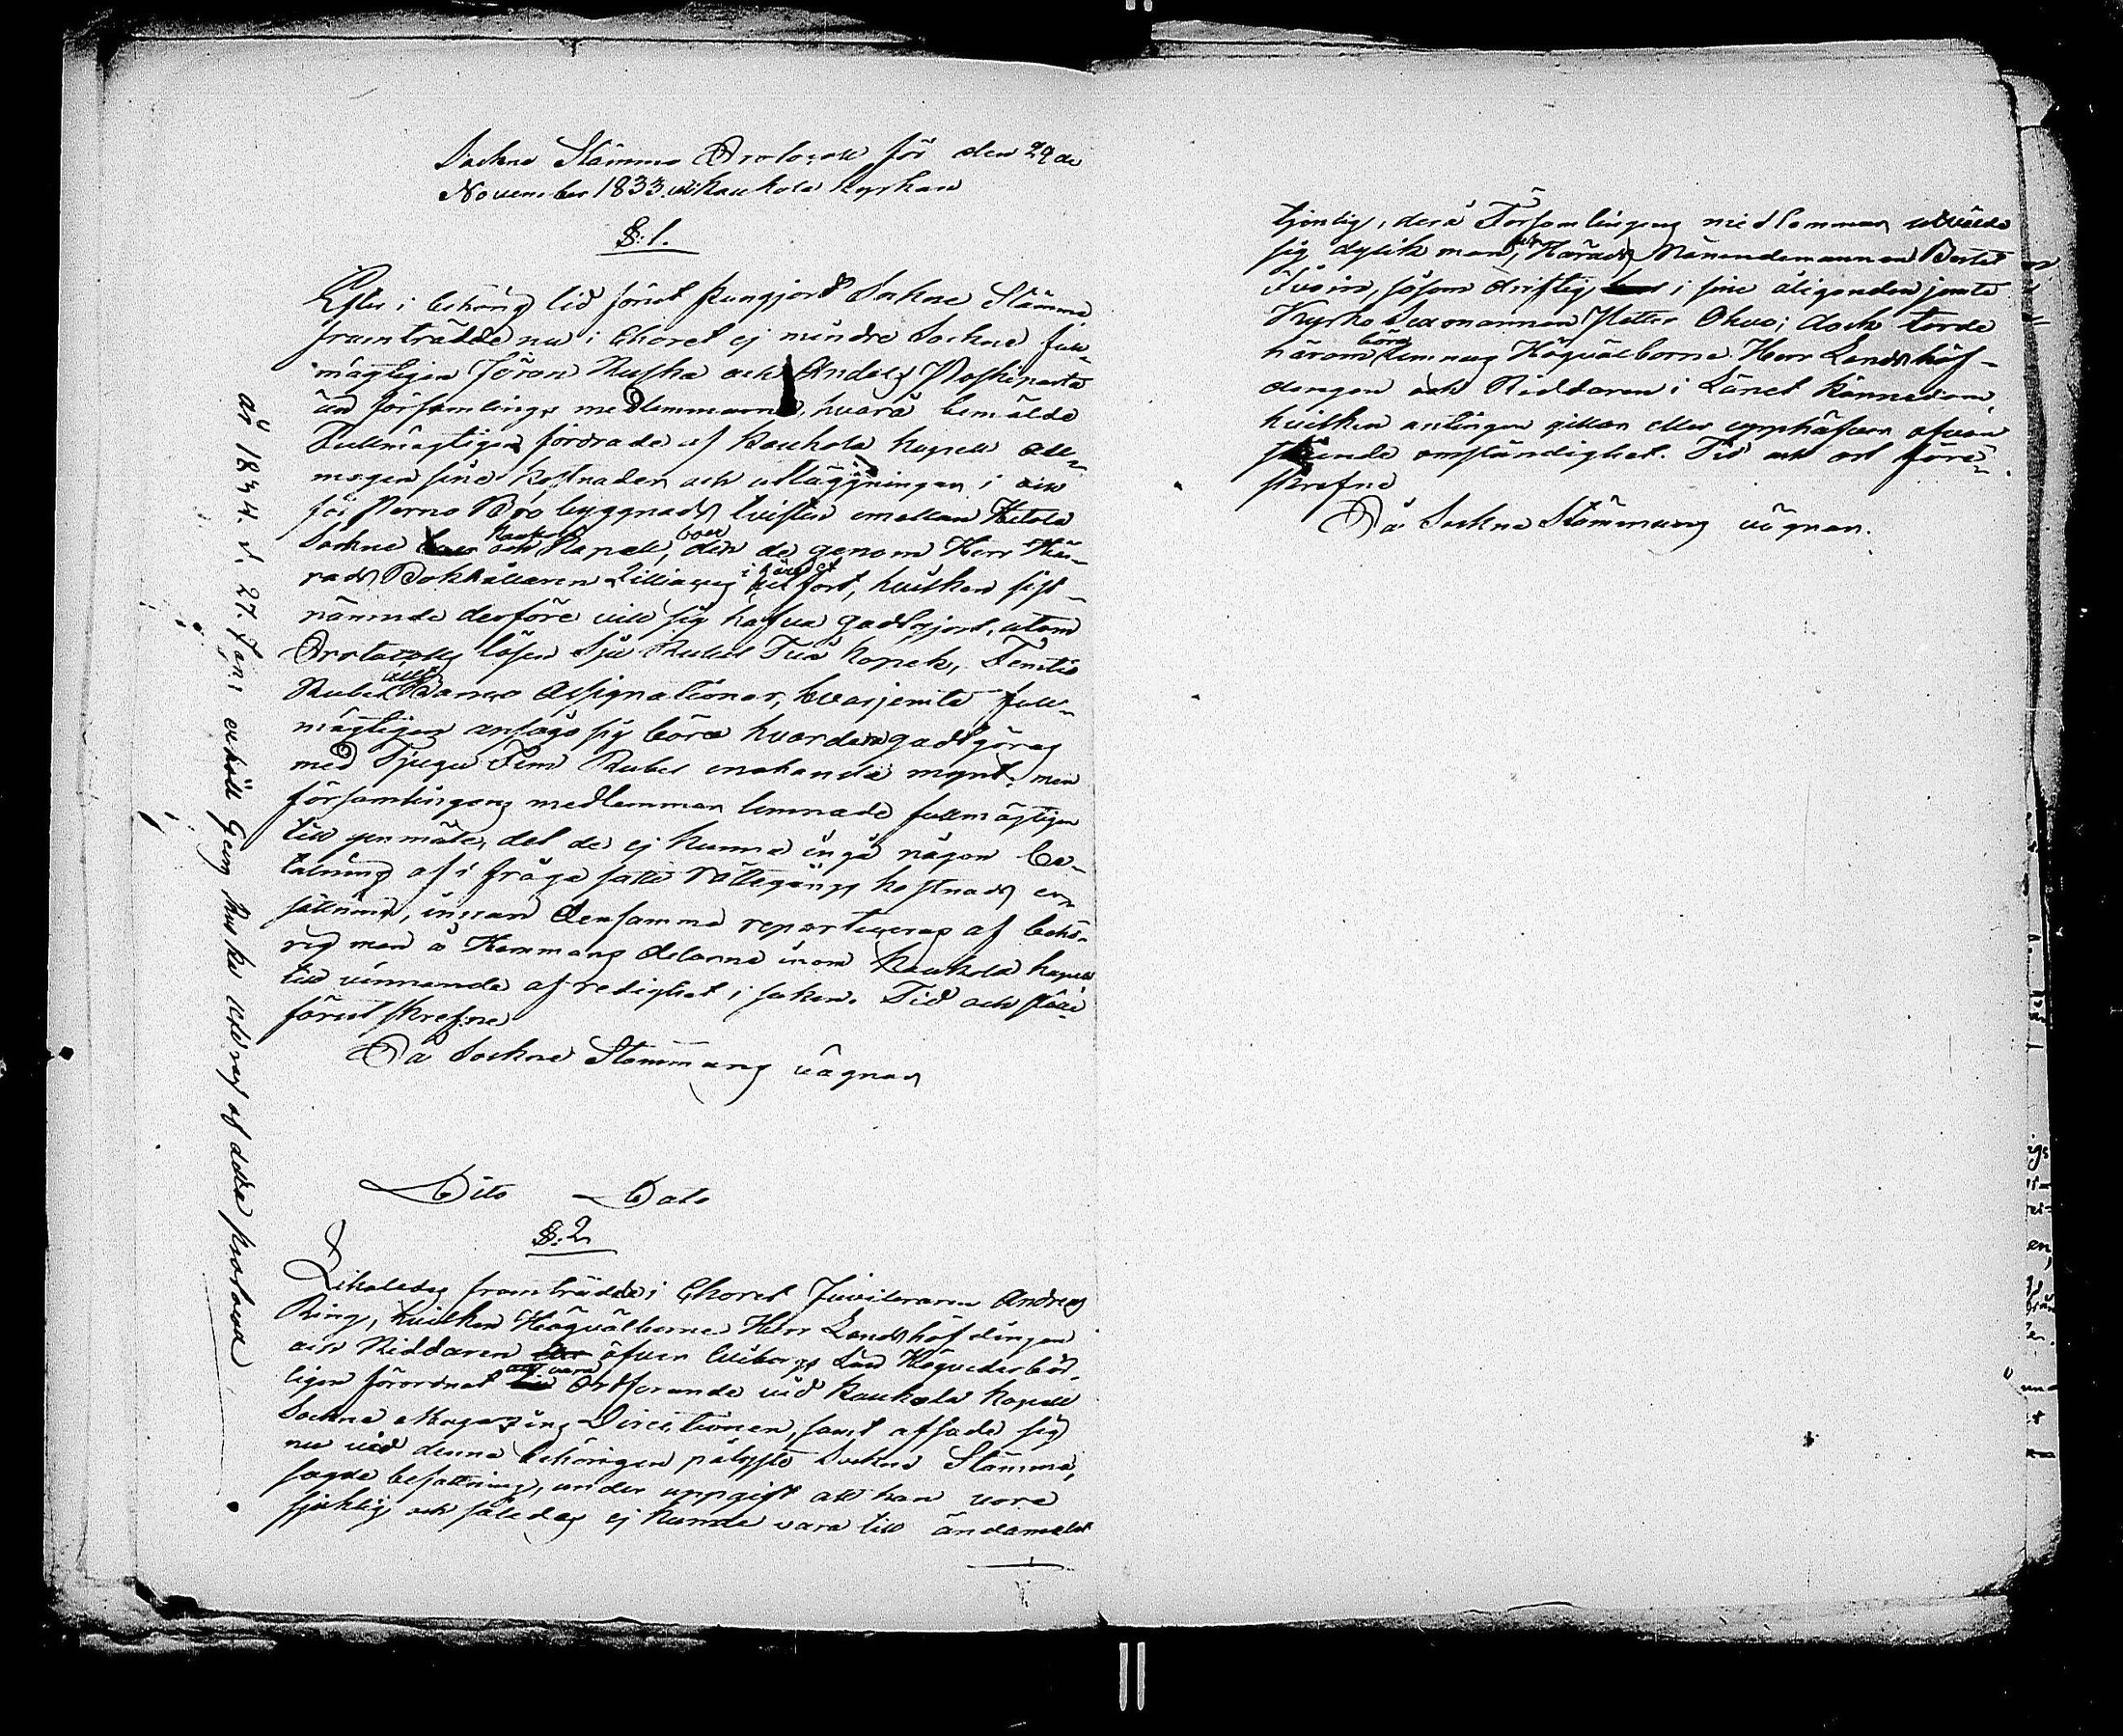 Sockne Stämmo Protocoll för den 29de
November 1833. vid Kaukola Kyrkan
§: 1.
Efter i behörig tid förut kungjord Sockne Stämma
framträdde nu i Choret ej mindre Sockne full-
mägtigen Jöran Ruska och Anders Poskiparta
än församlings medlemmarne, hvarå bemälde
Fullmägtigen fordrade af Kaukola Kapell all-
mogen sine kostnader och utläggningar i och
för Perno Bro byggnads tvisten emellan Hitola
Sockne och Kaukola Kapell, den de genom Herr Hä-
rads Bokhållaren Lilliaeg i Häradet utfört, hvilken sist-
nämnde derföre vill sig hafva godtgjort, utom
Protocolls lösen Sju Rubel Två Kopek, Femtio
Rubel allt Banco Assignationer, hvarjemte full-
mägtigen ansågo sig böra hvardera godtgöras
med Tjugu Fem Rubel enahanda mynt; men
församlingens medlemmar lemnade fullmägtigen
till genmäle, det de ej kunna ingå någon be-
talning af i fråga satte rättegångs kostnads er-
sättning, innan densamma reparteras af behö-
rig man å Hemmans delarne inom Kaukola Kapell
till vinnande af redighet i saken. Tid och ställe
förut skrefne
På Sockne Stämmans vägnar
Dito Dato
§: 2
Likaledes framträdde i Choret Juvileraren Andreas
Ring, hvilken Högvälborne Herr Landshöfdingen
och Riddaren öfver Wiborgs Län Högvederbör-
ligen förordnat att vara Ordförande vid Kaukola Kapell
Sockne Magazins Directionen, samt afsade sig
nu vid denna behörigen pålyste Sockne Stämma,
sagde befattning, under uppgift att han vore
sjuklig och således ej kunde vara till ändamålet
tjenlig, derå Församlingens medlemmar utvälde
sig dylik man, Härads Nämndemannen Bertel
Ivoin, såsom driftig i sine åligganden jemte
Kyrko Sexmannen Petter Okva; dock torde
härom böra lemnas Högvälborne Herr Landshöf-
dingen och Riddaren i Länet kännedom,
hvilken antingen gillar eller upphäfver ofvan
stående omständighet. Tid och ort före-
skrefne
På Sockne Stämmans vägnar.
år 1834. d. 27. Jan: erhöll Georg Ruska Utdrag af detta protocoll